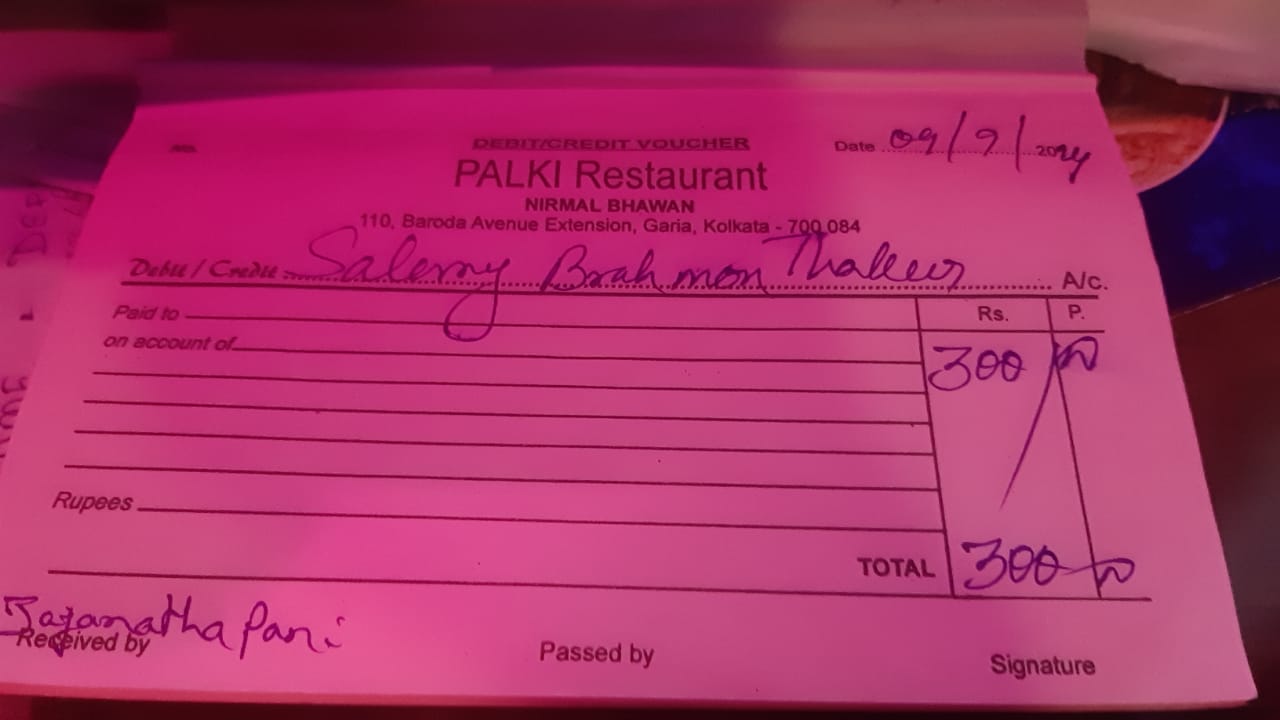 DEBIT/CREDIT VOUCHER
Date 09/9/2024
PALKI Restaurant
NIRMAL BHAWAN
110, Baroda Avenue Extension, Garia, Kolkata - 700 084
Debit / Credit Salery Brahmon Thakur A/c.
Paid to Rs. P.
on account of 300/00
Rupees
TOTAL 300 00
Jaganatha Pani
Received by Passed by Signature